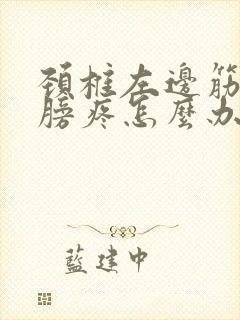 頚椎左邊筋
膀疼怎麼办
藍建中